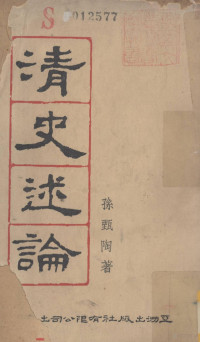 S 012577
清史述論
孫甄陶著
亞洲出版社有限公司